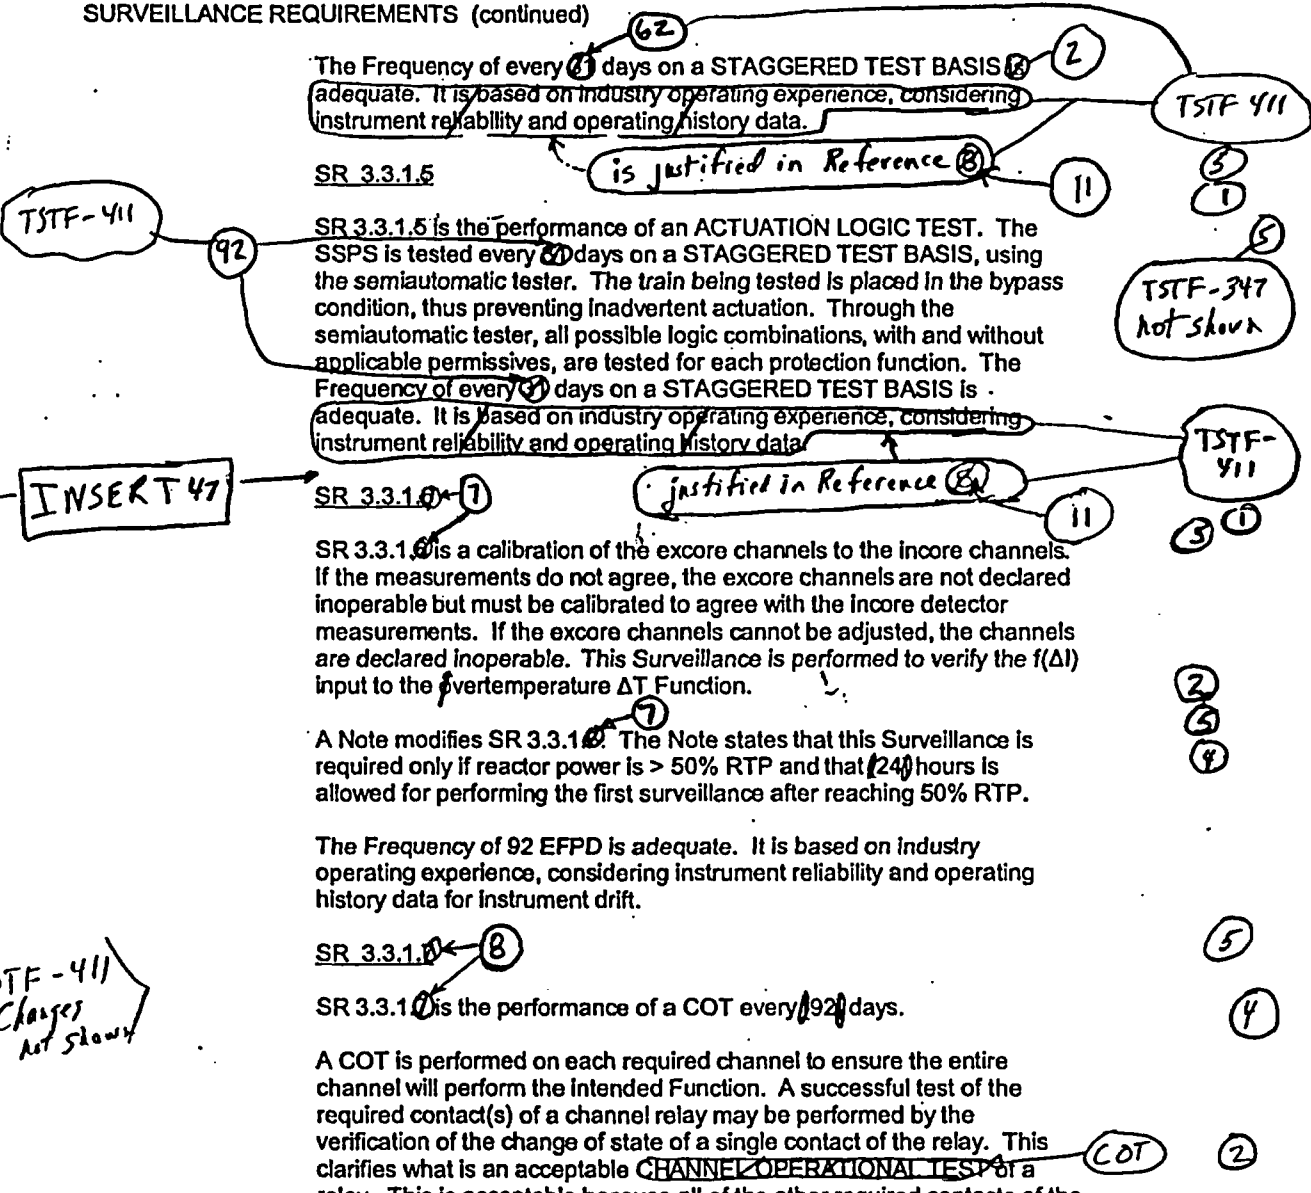 SURVEILLANCE REQUIREMENTS (continued)
62
The Frequency of every days on a STAGGERED TEST BASIS 2
adequate. It is based on industry operating experience, considering TSTF 411
instrument reliability and operating history data.
is justified in Reference 8 11 5
SR 3.3.1.5 1
TSTF-411
SR 3.3.1.5 is the performance of an ACTUATION LOGIC TEST. The 5
92 SSPS is tested every 31 days on a STAGGERED TEST BASIS, using
the semiautomatic tester. The train being tested is placed in the bypass TSTF-347
condition, thus preventing inadvertent actuation. Through the not shown
semiautomatic tester, all possible logic combinations, with and without
applicable permissives, are tested for each protection function. The
Frequency of every 31 days on a STAGGERED TEST BASIS is
adequate. It is based on industry operating experience, considering TSTF-
instrument reliability and operating history data 411
INSERT 47 justified in Reference 8 11
SR 3.3.1. 7 1
SR 3.3.1.6 is a calibration of the excore channels to the incore channels.
If the measurements do not agree, the excore channels are not declared
inoperable but must be calibrated to agree with the incore detector
measurements. If the excore channels cannot be adjusted, the channels
are declared inoperable. This Surveillance is performed to verify the f(ΔI)
input to the overtemperature ΔT Function. 2
7 5
A Note modifies SR 3.3.1. The Note states that this Surveillance is
required only if reactor power is > 50% RTP and that [24] hours is 4
allowed for performing the first surveillance after reaching 50% RTP.
The Frequency of 92 EFPD is adequate. It is based on industry
operating experience, considering instrument reliability and operating
history data for instrument drift.
SR 3.3.1. 8 5
TF-411
Changes
not shown
SR 3.3.1.7 is the performance of a COT every [92] days. 4
A COT is performed on each required channel to ensure the entire
channel will perform the intended Function. A successful test of the
required contact(s) of a channel relay may be performed by the
verification of the change of state of a single contact of the relay. This
clarifies what is an acceptable CHANNEL OPERATIONAL TEST of a COT 2
relay. This is acceptable because all of the other required contacts of the